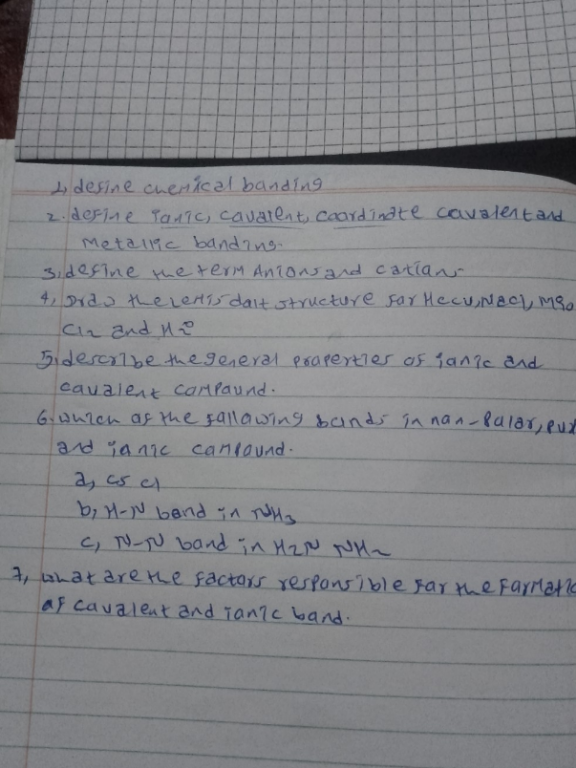 1, define chemical banding
2. define ianic, cavalent, coardinate cavalent and
metallic banding.
3, define the term Anions and catians
4, Draw the lewis dalt structure far Hccu, Nacl, Mgo
Cl2 and H2O
5, describe the general praperties of ianic and
cavalent campaund.
6. which of the fallowing bands in nan-Palar, pul
and ianic campaund.
a, cs cl
b, H-N band in NH3
c, N-N band in H2N NH2
7, what are the factors responsible far the farmatio
af cavalent and ianic band.